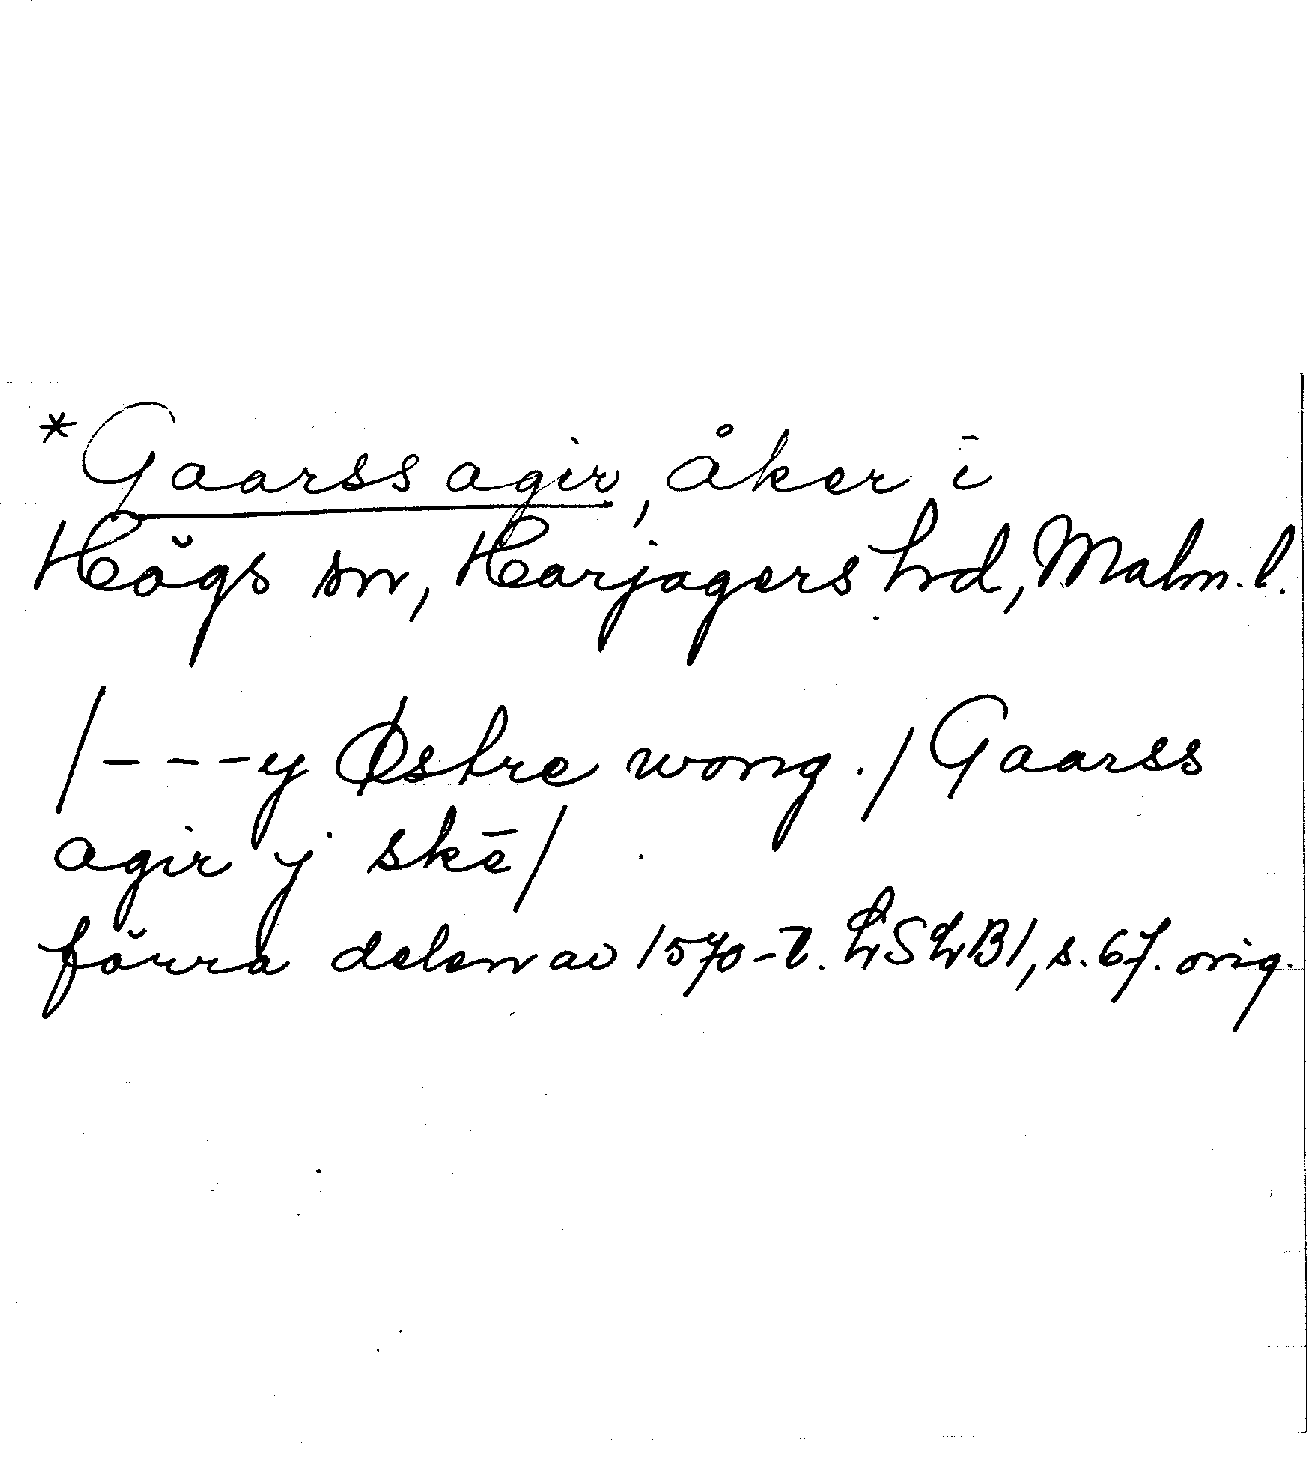 *Gaarss agir, åker i
Högs sn, Harjagers hd, Malm. l.
/---y Østre wong./Gaarss
agir j skē/
förra delen av 1570-t. LSLB1, s.67. orig.